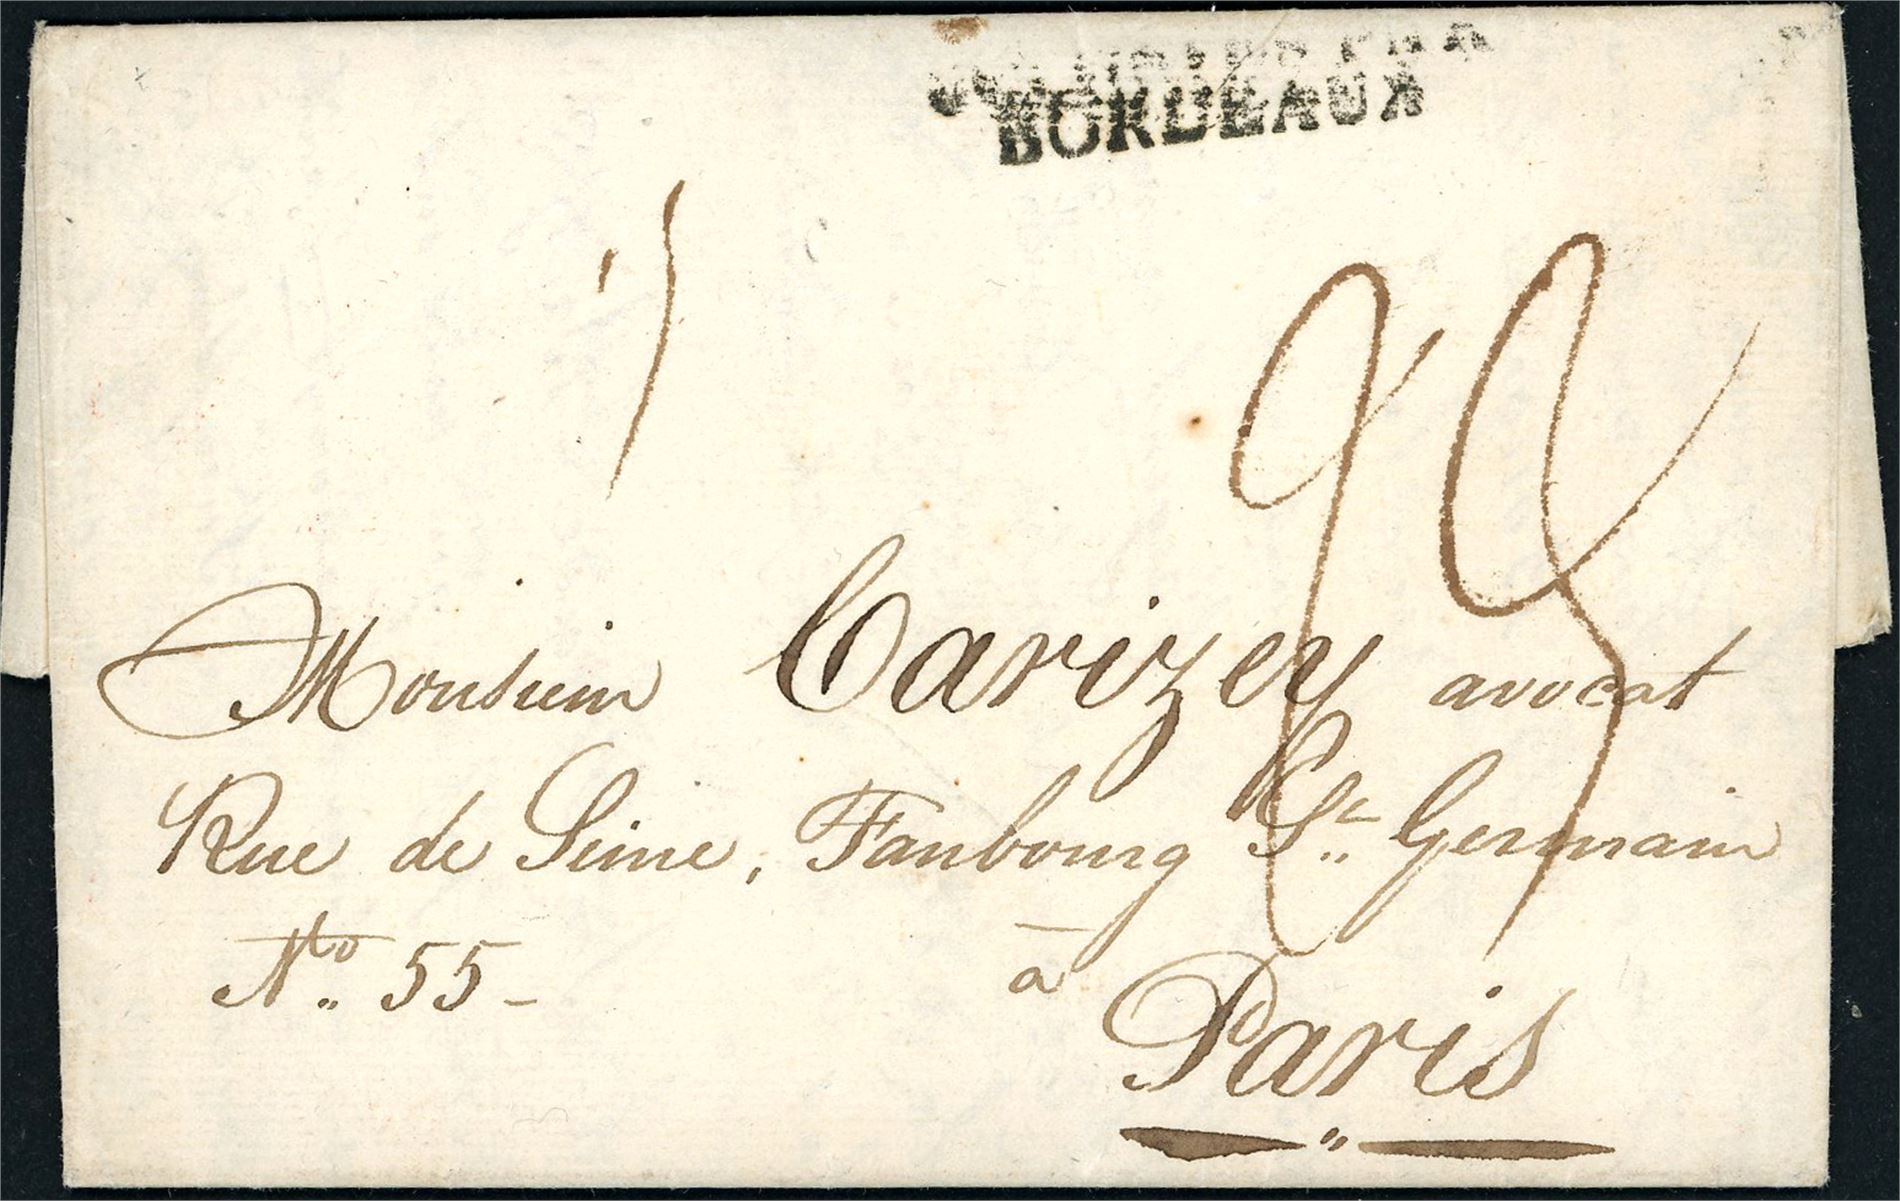 COLONIES PAR
BORDEAUX
Monsieur Carizey avocat
Rue de Seine, Faubourg St. Germain
No. 55 -
à
Paris